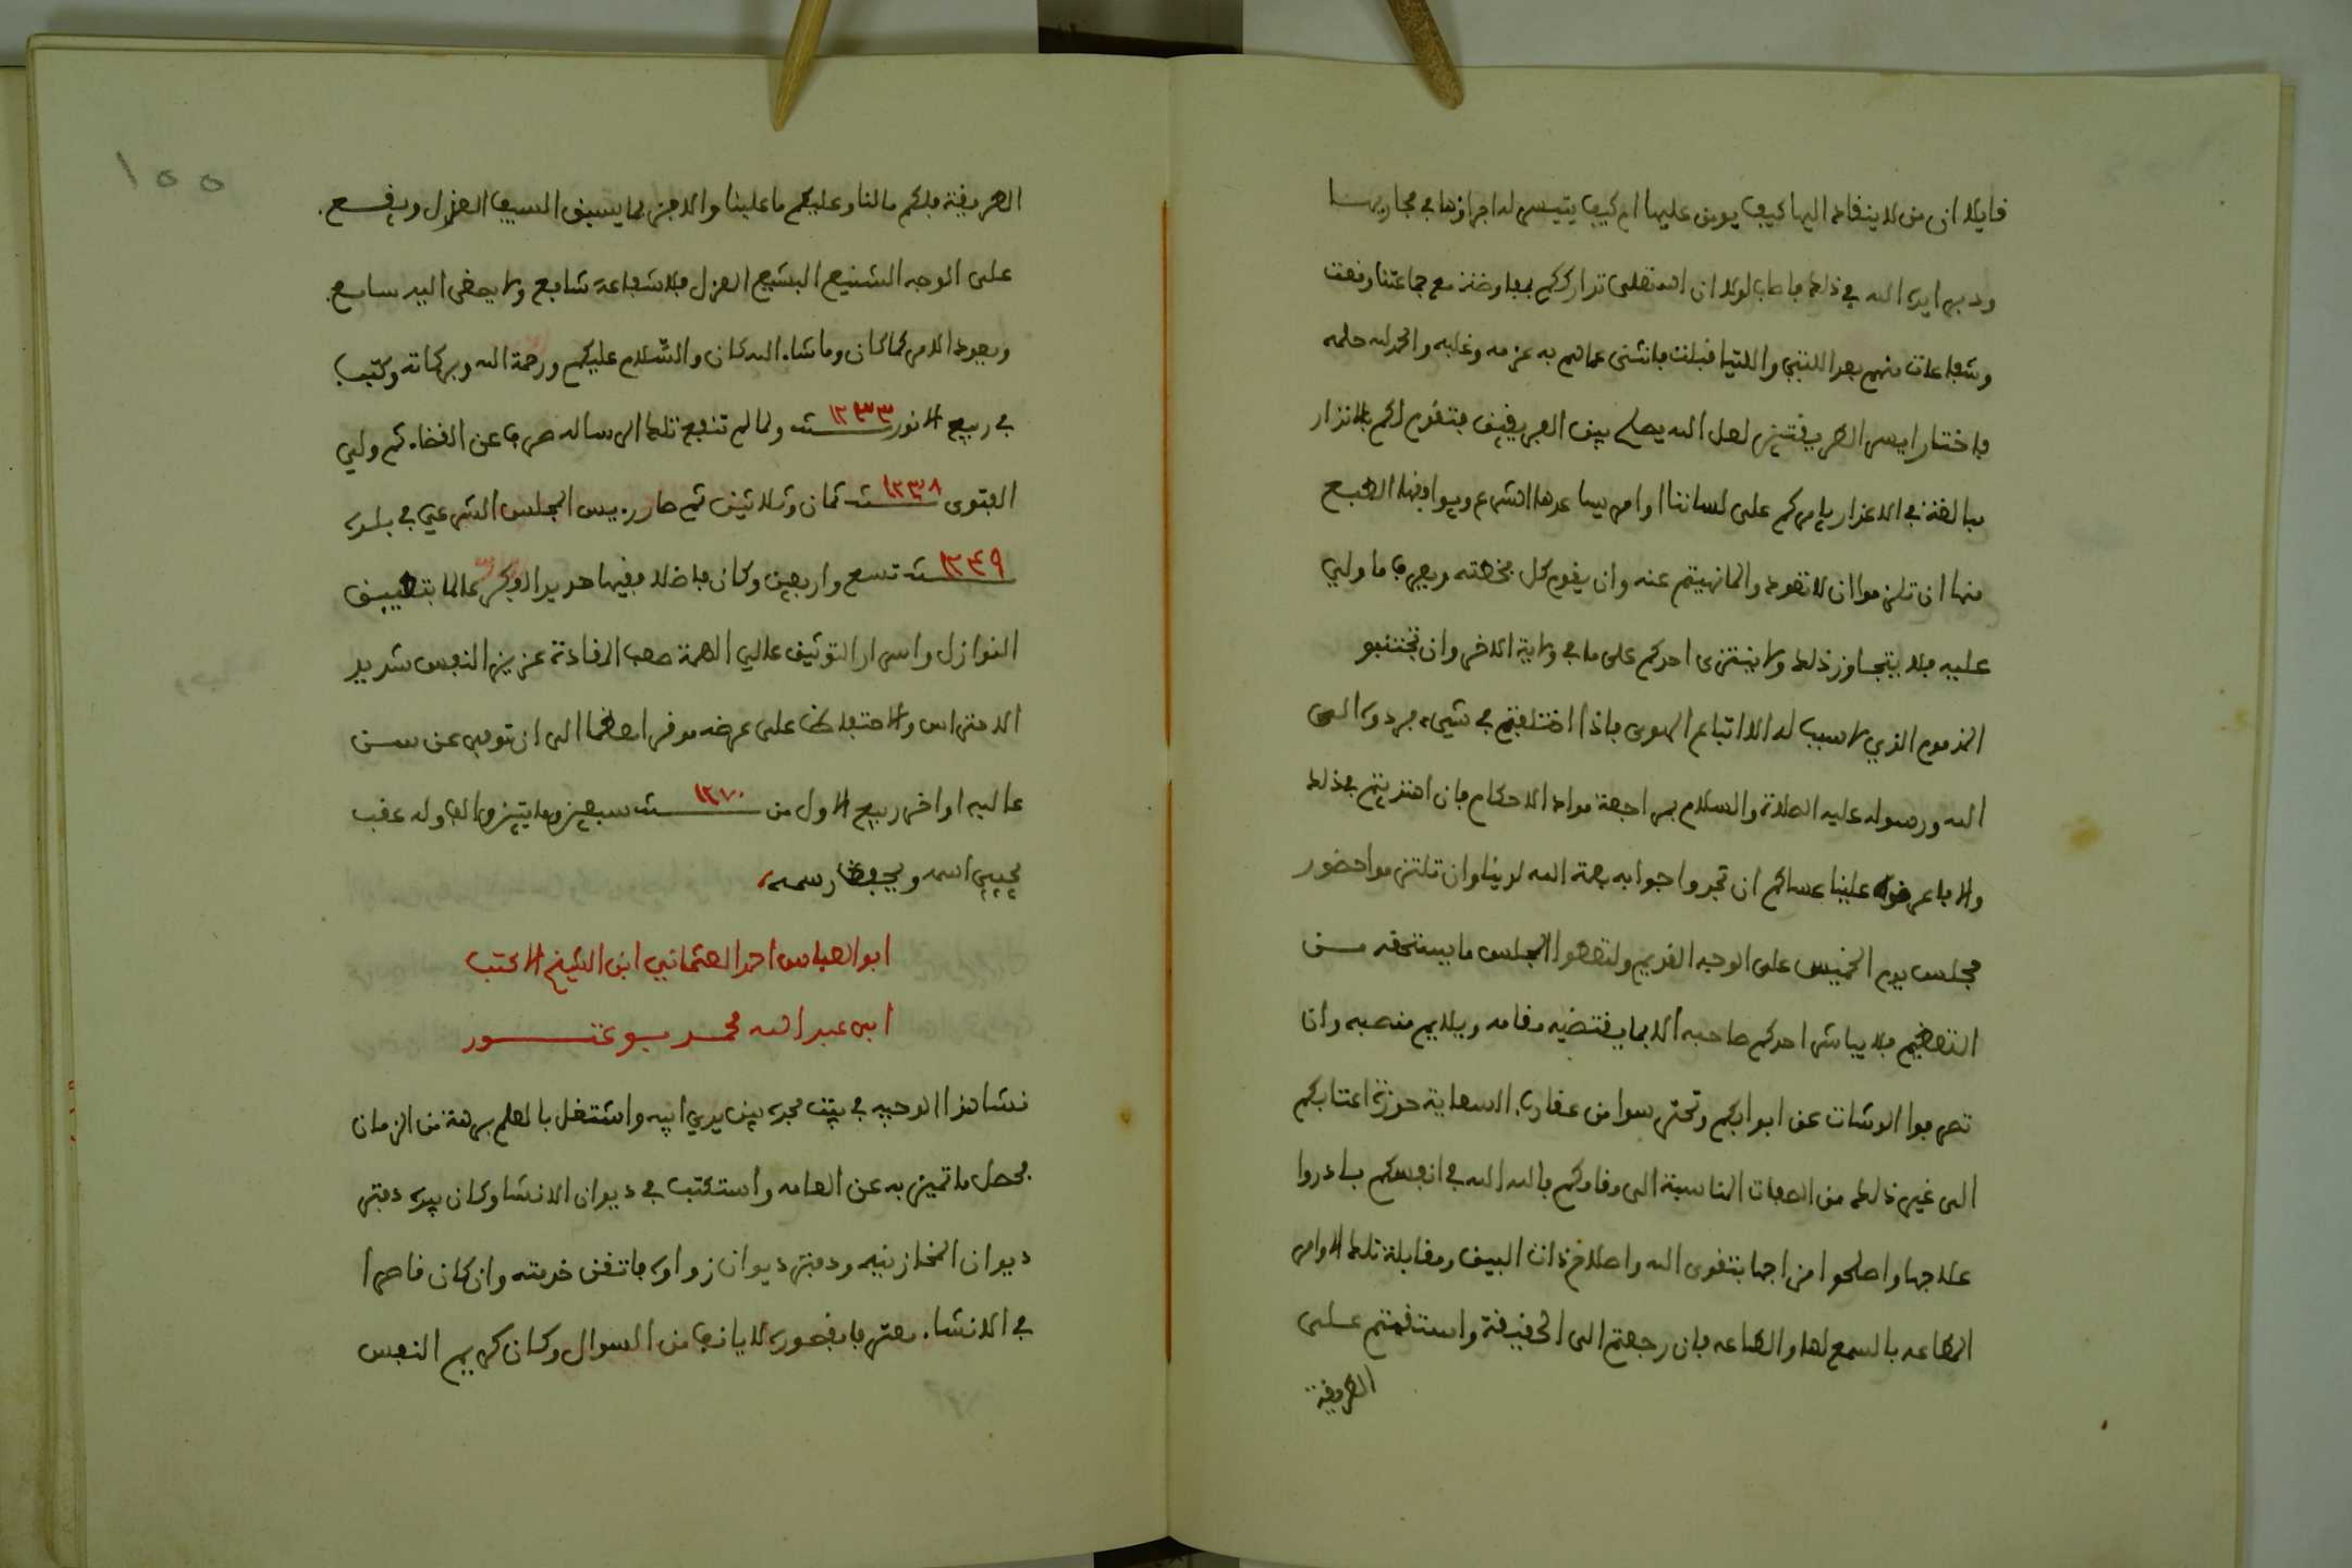 قايلا ان من لا ينقاد اليها كيف يومن عليها ام كيف يتيسر له اجراؤها في مجاريها
ودبر ايده الله في ذلك فاطاب لولا ان الله تعلى تدارككم بمفاوضة مع جماعتنا وقعت
وشفاعات منهم بعد اللتي واللتيا قبلت فانثنى عما هم به عزمه وغلبه والحمد لله حلمه
فاختار ايسر الطريقتين لعل الله يصلح بين الفريقين فتقدم لكم بالانذار
مبالغة في الاعذار يامركم على لساننا اوامر يساعدها الشرع ويوافقها الطبع
منها ان تلزموا ان لا تعودوا لما نهيتم عنه وان يقوم كل بخطته ويعرف ما ولي
عليه فلا يتجاوز ذلك ولا ينتزى احدكم على ما في ولاية الاخر وان تجتنبو
المذموم الذي لا سبب له الا اتباع الهوى فاذا اختلفتم في شيء فردوه الى
الله ورسوله عليه الصلاة والسلام بمراجعة مواد الاحكام فان اهتديتم بذلك
والا فاعرضوه علينا عساكم ان تجدوا جوابه بمنة الله لدينا وان تلتزموا حضور
مجلس يوم الخميس على الوجه القديم ولتعطوا المجلس ما يستحقه مـن
التعظيم فلا يباشر احدكم صاحبه الا بما يقتضيه مقامه ويلايم منصبه وان
تصرفوا الوشات عن ابوابكم وتحترسوا من عقارب السعاية حوزة اعتابكم
الى غير ذلك من الصفات المناسبة الى وقاركم فالله الله في انفسكم بادروا
علاجها واصلحوا مزاجها بتقوى الله واصلاح ذات البين ومقابلة تلك الاوامر
المطاعه بالسمع لها والطاعه فان رجعتم الى الحقيقة واستقمتم عـلـى
الطريقة
١٥٥
الطريقة فلكم ما لنا وعليكم ما علينا والا فربما يسبق السيف العذل ويقـع
على الوجه الشنيع البشيع العزل فلا شفاعة شافع ولا يصغى اليه سامع
ويعود الامر كما كان وما شاء الله كان والسلام عليكم ورحمة الله وبركاته وكتب
في ربيع الانور سنة ١٢٣٣ ولما لم تنفع تلك الرساله صرف عن القضاء ثم ولي
الفتوى سنة ١٢٣٨ ثمان وثلاثين ثم صار رءيس المجلس الشرعي في بلده
سنة ١٢٤٩ تسع واربعين وكان فاضلا فقيها حديد الفكر عالما بتطبيق
النوازل واسرار التوثيق عالي الهمة صعب المقادة عزيز النفس شديد
الاحتراس والاحتفاظ على عرضه موفر العظما الى ان توفي عن سـن
عاليه اواخر ربيع الاول من سنة ١٢٧٠ سبعين ومايتين والف وله عقب
يحيي اسمه ويحفظ رسمه
ابو العباس احمد العثماني ابن الشيخ الاكتب
ابي عبد الله محمد بوعتـور
نشا هذا الوجيه في بيت مجده بين يدي ابيه واشتغل بالعلم برهة من الزمان
فحصل ما تميز به عن العامه واستكتب في ديوان الانشا وكان بيده دفتر
ديوان المخازنيه ودفتر ديوان زواوه فاتقن خدمته وان كان قاصرا
في الانشاء معترفا بقصوره لا يانف من السوال وكان كريم النفس